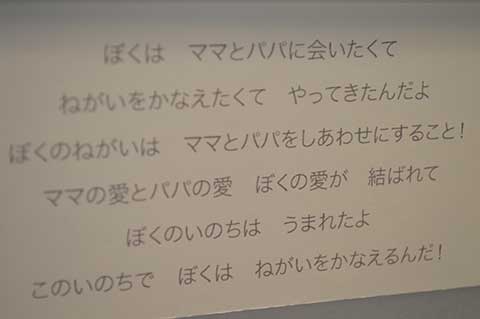 ぼくは　ママとパパに会いたくて
ねがいをかなえたくて　やってきたんだよ
ぼくのねがいは　ママとパパをしあわせにすること！
ママの愛とパパの愛　ぼくの愛が　結ばれて
ぼくのいのちは　うまれたよ
このいのちで　ぼくは　ねがいをかなえるんだ！